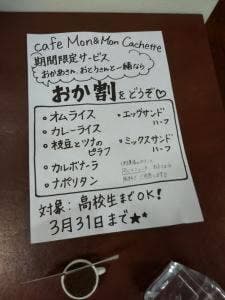 cafe Mon&Mon Cachette
期間限定サービス
おかあさん、おとうさんと一緒なら
おか割をどうぞ♡
・オムライス
・カレーライス
・枝豆とツナの
ピラフ
・カルボナーラ
・ナポリタン
・エッグサンド
ハーフ
・ミックスサンド
ハーフ
対象:高校生までOK!
3月31日まで★★